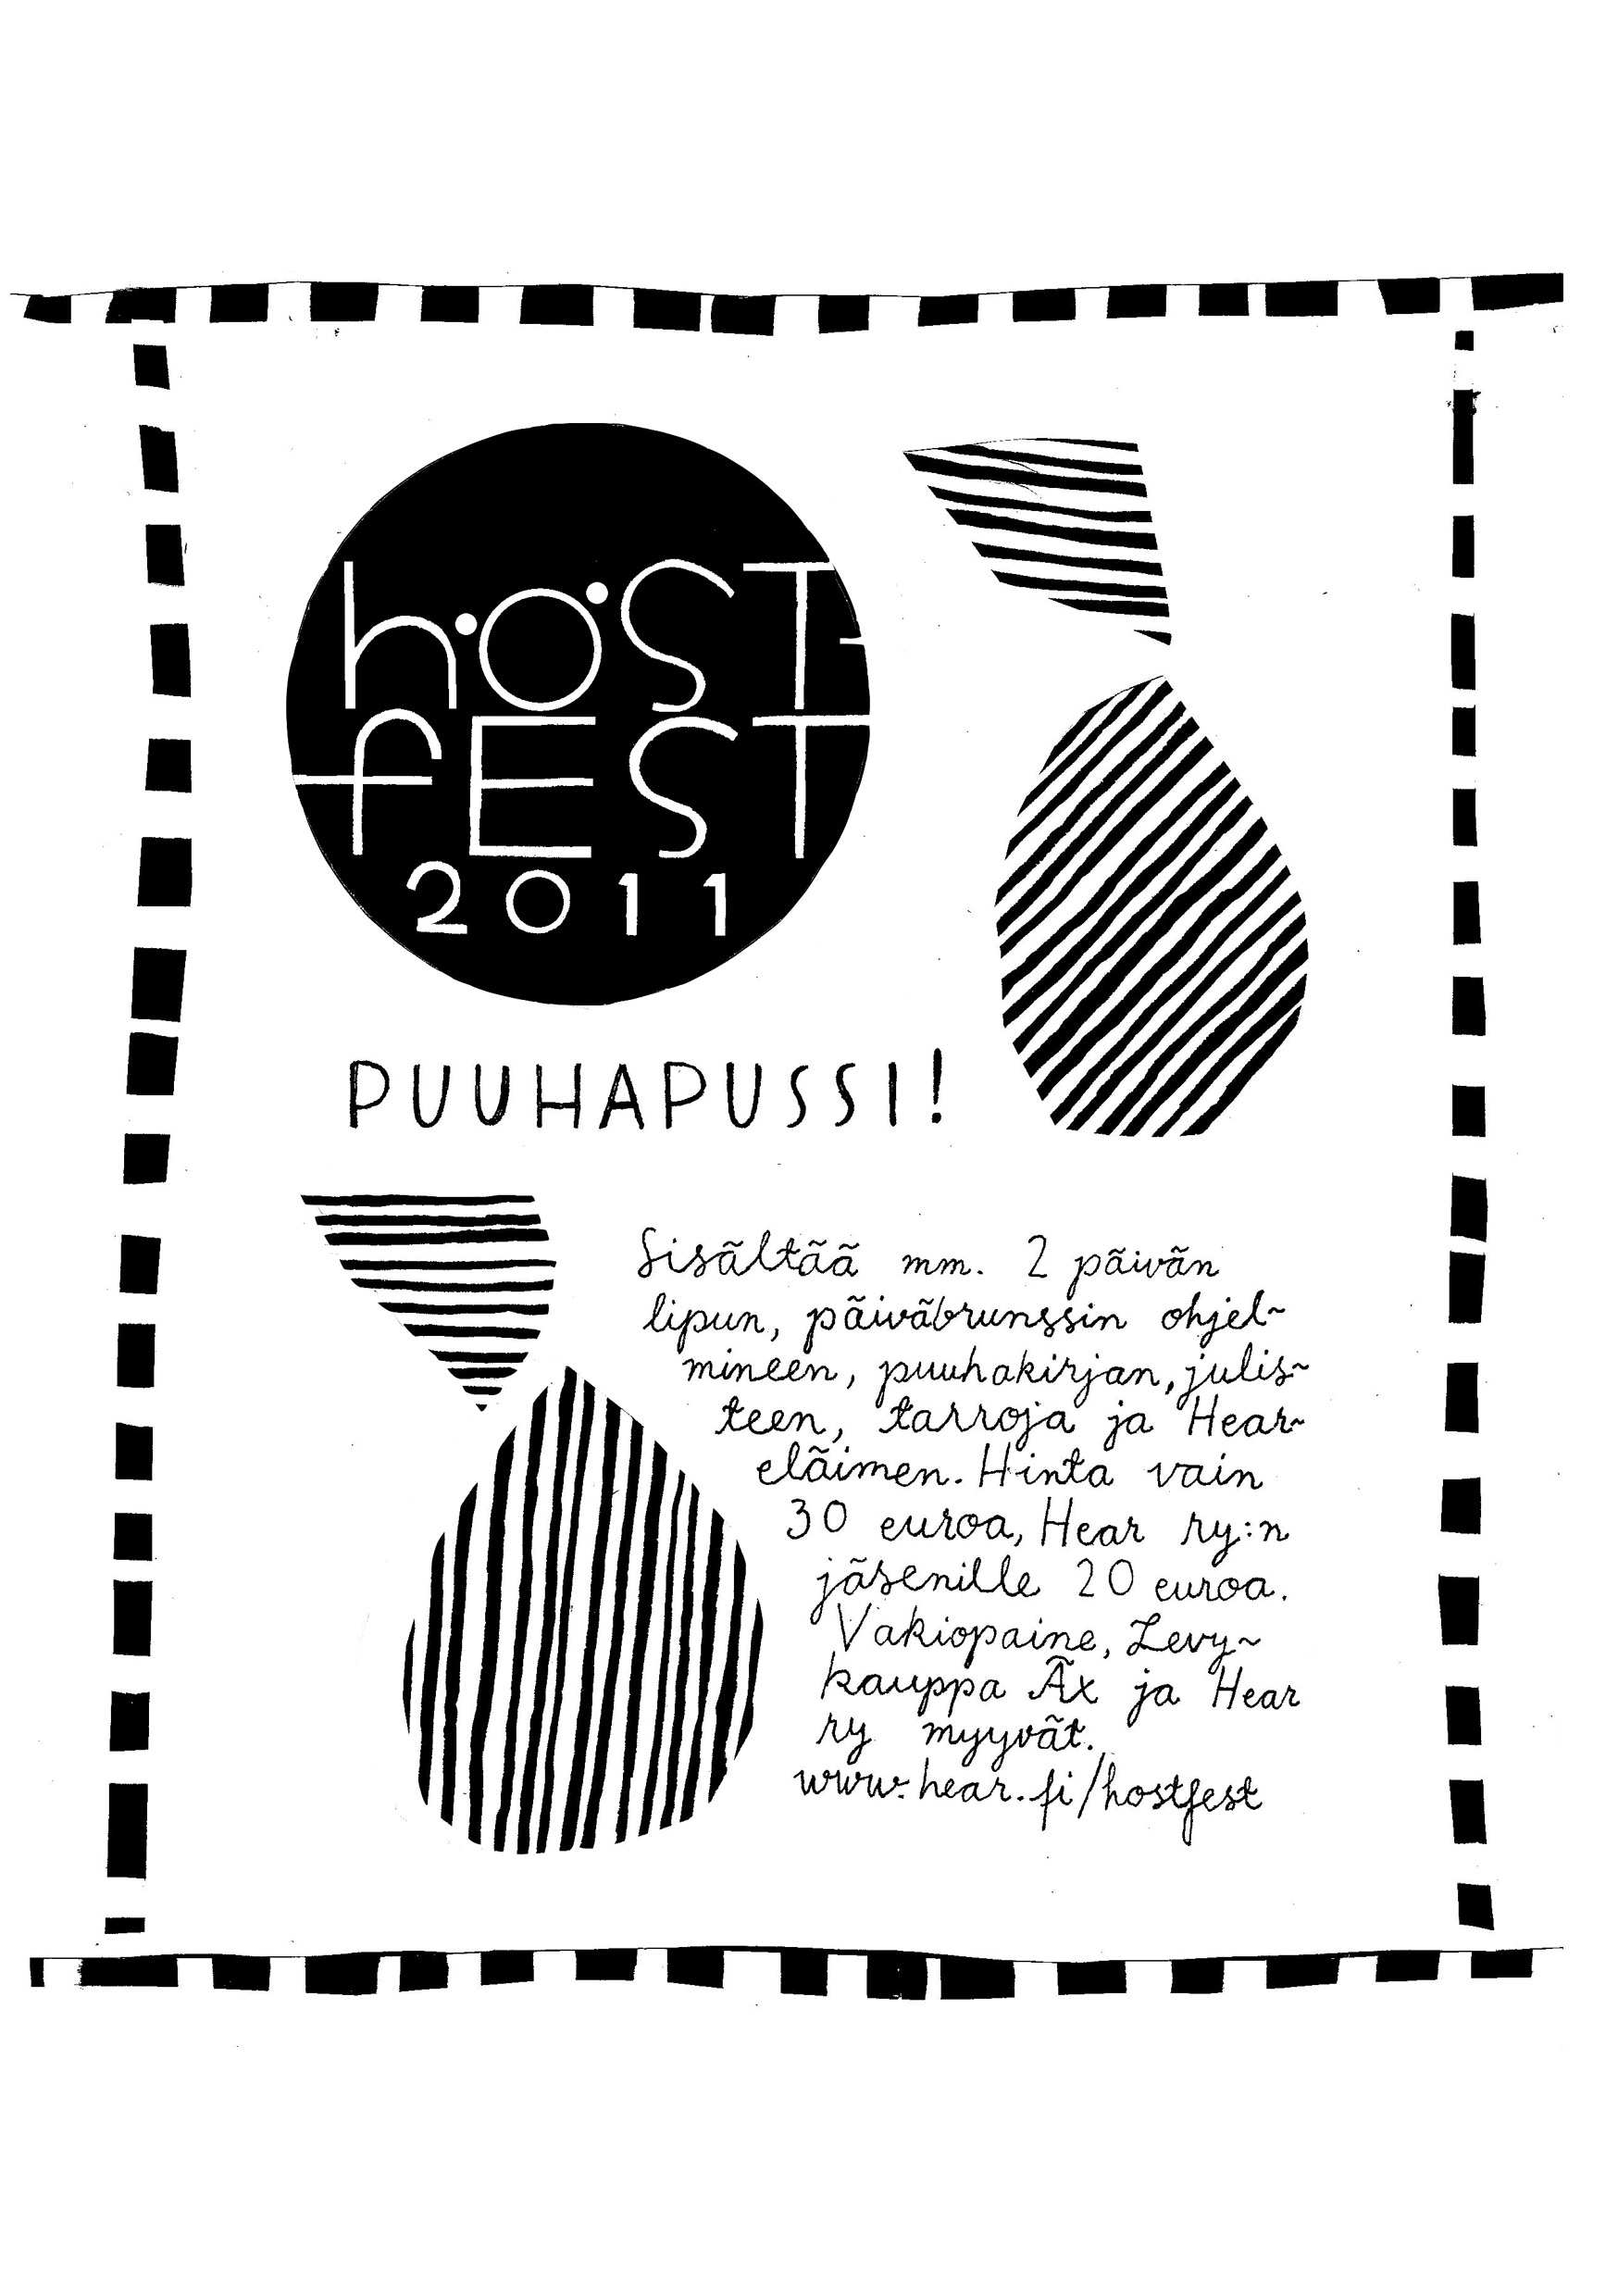 höST-
fEST
2011
PUUHAPUSSI!
Sisältää mm. 2 päivän
lipun, päiväbrunssin ohjel~
mineen, puuhakirjan, julis~
teen, tarroja ja Hear~
eläimen. Hinta vain
30 euroa, Hear ry:n
jäsenille 20 euroa.
Vakiopaine, Levy~
kauppa Äx ja Hear
ry myyvät.
www.hear.fi/hostfest